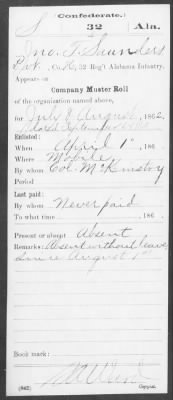 (Confederate.)
S 32 Ala.
Jno. T. Saunders
Pvt, Co. K, 32 Reg't Alabama Infantry.
Appears on
Company Muster Roll
of the organization named above,
for July & August, 1862.
dated September
Enlisted:
When April 1", 186 .
Where Mobile
By whom Col. McKinstry
Period
Last paid:
By whom Never paid
To what time , 186 .
Present or absent Absent
Remarks: Absent without leave
since August 1st
Book mark:
(642) Copyist.